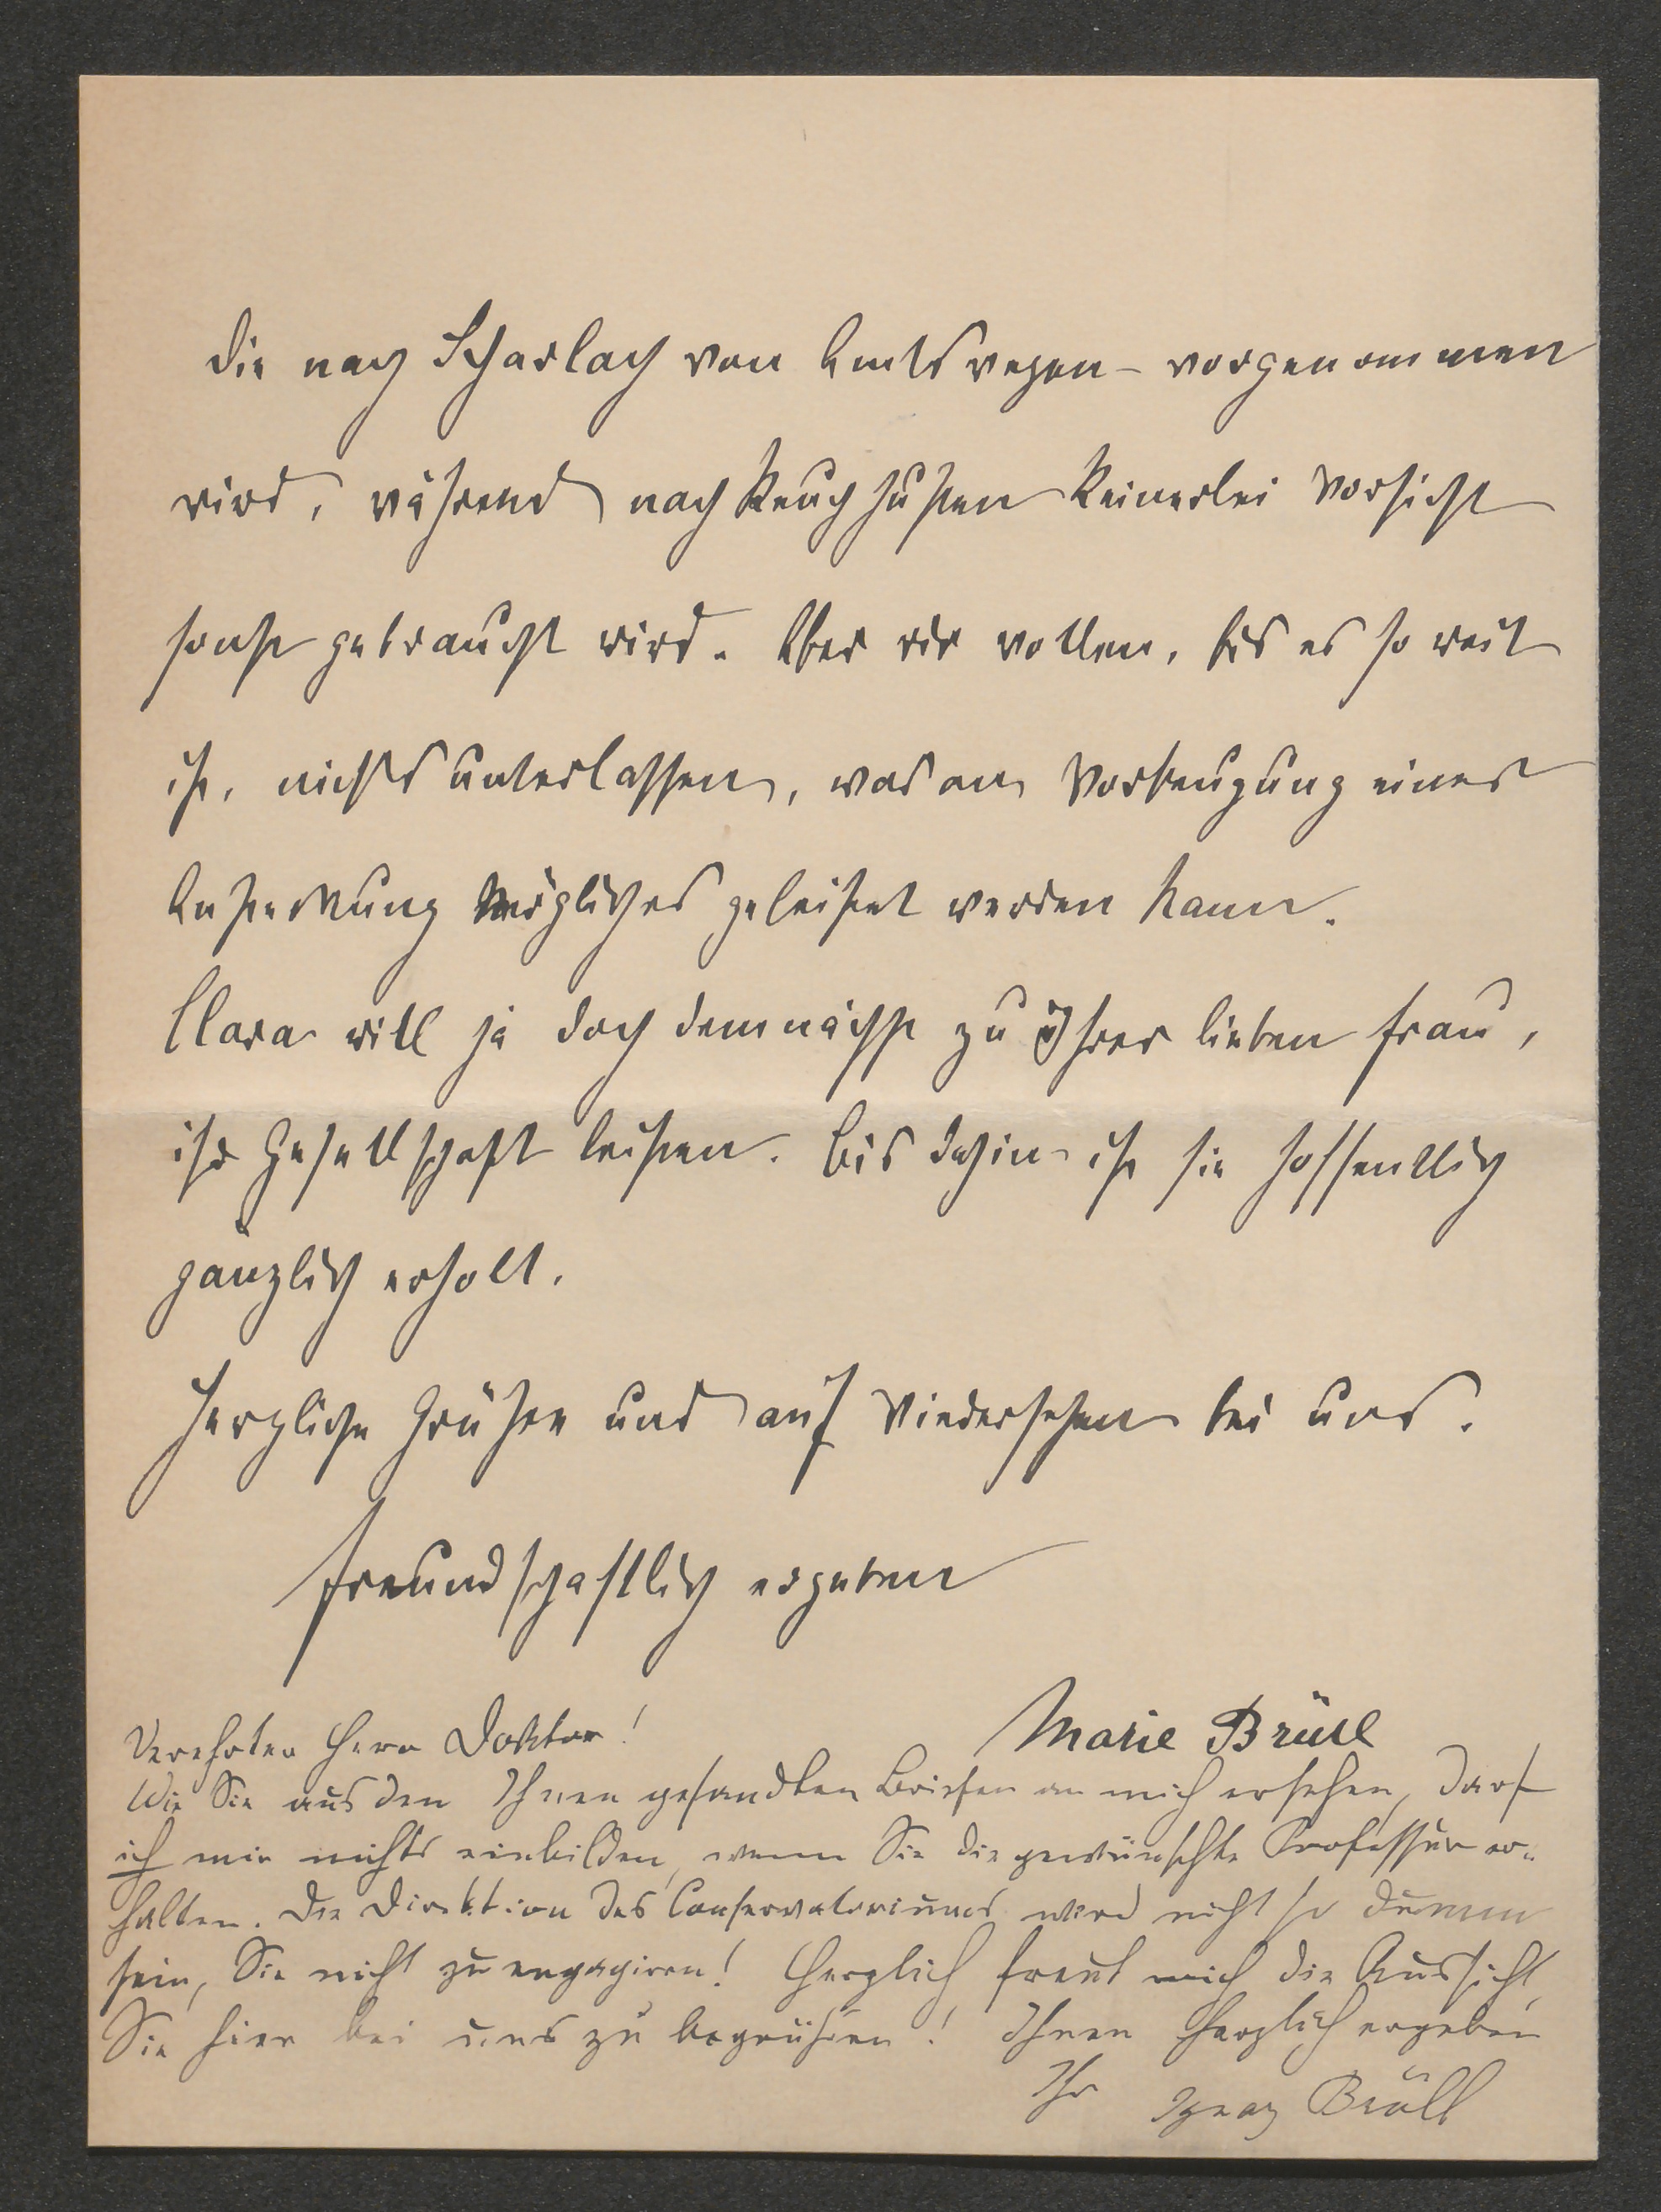 die nach Scharlach von Amtswegen vorgenommen
wird, während nach Keuchhusten keinerlei Vorsicht
sonst gebraucht wird. Aber wir wollen, bis es so weit
ist, nichts unterlassen, was an Vorbeugung einer
Ansteckung Mögliches geleistet werden kann.
Clara will ja doch demnächst zu Ihrer lieben Frau,
ihr Gesellschaft leisten. Bis dahin ist sie hoffentlich
gänzlich erholt.
Herzliche Grüße und auf Wiedersehen bei uns.
freundschaftlich ergeben
Marie Brüll
Verehrter Herr Doktor!
Wie Sie aus den Ihnen gesandten Briefen an mich ersehen, darf
ich mir nichts einbilden, wenn Sie die gewünschte Professur er-
halten. Die Direktion des Conservatoriums wird nicht so dumm
sein, Sie nicht zu engagiren! Herzlich freut mich die Aussicht,
Sie hier bei uns zu begrüßen! Ihnen herzlich ergeben
Ihr Ignaz Brüll